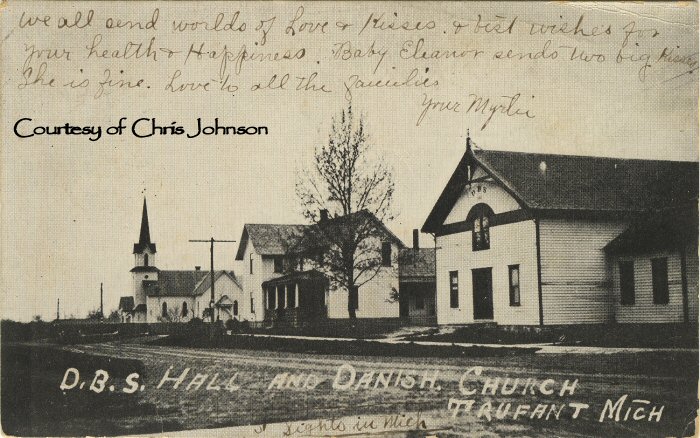 we all send worlds of Love & Kisses. & best wishes for
your health & Happiness. Baby Eleanor sends two big Kisses
She is fine. Love to all the families
Your Myrtie
Courtesy of Chris Johnson
D.B.S.
D.B.S. HALL AND DANISH. CHURCH
TRUFANT MICH
Sights in Mich